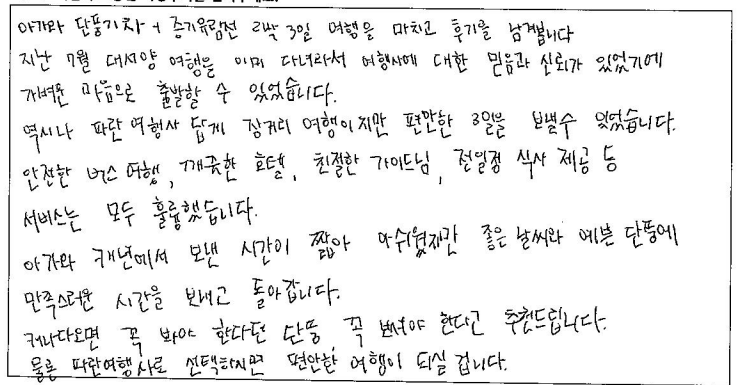 아가와 단풍기차 + 증기유람선 2박 3일 여행을 마치고 후기를 남겨봅니다
지난 7월 대서양 여행을 이미 다녀와서 여행사에 대한 믿음과 신뢰가 있었기에
가벼운 마음으로 출발할 수 있었습니다.
역시나 파란여행사 답게 장거리 여행이지만 편안한 3일을 보낼수 있었습니다.
안전한 버스여행, 깨끗한 호텔, 친절한 가이드님, 전일정 식사 제공 등
서비스는 모두 훌륭했습니다.
아가와 캐년에서 보낸 시간이 짧아 아쉬웠지만 좋은 날씨와 예쁜 단풍에
만족스러운 시간을 보내고 돌아갑니다.
캐나다오면 꼭 봐야 한다던 단풍, 꼭 봐야 한다고 추천드립니다.
물론 파란여행사로 선택하시면 편안한 여행이 되실 겁니다.